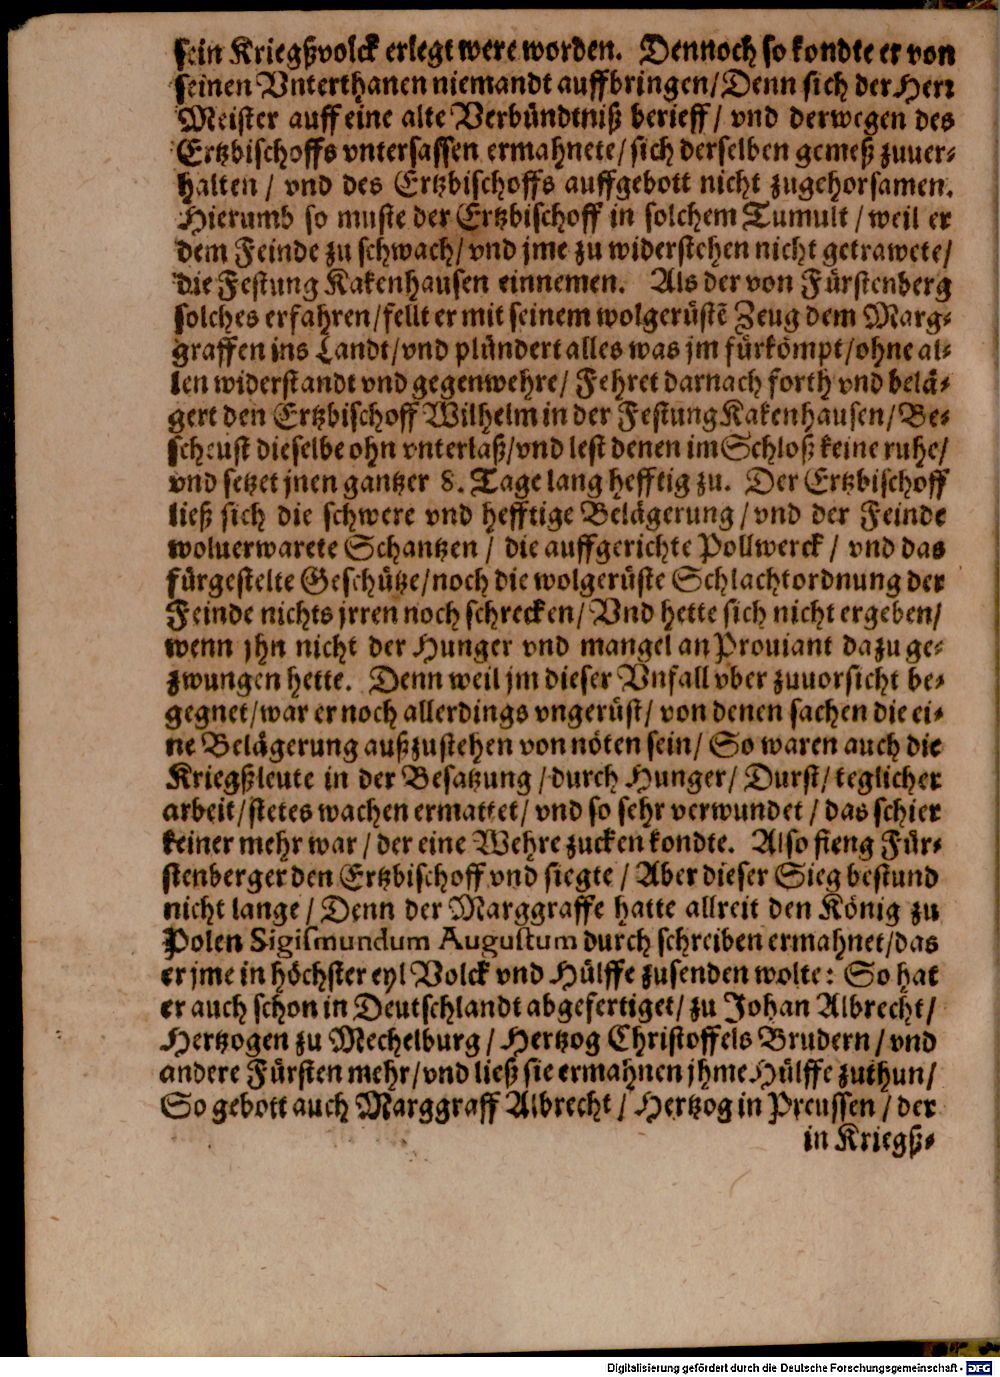 sein Kriegßvolck erlegt were worden. Dennoch so kondte er von
seinen Vnterthanen niemandt auffbringen/Denn sich der Herr
Meister auff eine alte Verbündtniß berieff/ vnd derwegen des
Ertzbischoffs vntersassen ermahnete/sich derselben gemeß zuuer-
halten / vnd des Ertzbischoffs auffgebott nicht zugehorsamen.
Hierumb so muste der Ertzbischoff in solchem Tumult / weil er
dem Feinde zu schwach/vnd jme zu widerstehen nicht getrawete/
die Festung Kakenhausen einnemen. Als der von Fürstenberg
solches erfahren/fellt er mit seinem wolgerüstē Zeug dem Marg-
graffen ins Landt/vnd plündert alles was jm fürkömpt/ohne al-
len widerstandt vnd gegenwehre/ Fehret darnach forth vnd belä-
gert den Ertzbischoff Wilhelm in der Festung Kakenhausen/Be-
scheust dieselbe ohn vnterlaß/vnd lest denen im Schloß keine ruhe/
vnd setzet jnen gantzer 8. Tage lang hefftig zu. Der Ertzbischoff
ließ sich die schwere vnd hefftige Belägerung/vnd der Feinde
woluerwarete Schantzen / die auffgerichte Pollwerck / vnd das
fürgestelte Geschütze/noch die wolgerüste Schlachtordnung der
Feinde nichts jrren noch schrecken/Vnd hette sich nicht ergeben/
wenn jhn nicht der Hunger vnd mangel an Prouiant dazu ge-
zwungen hette. Denn weil jm dieser Vnfall vber zuuorsicht be-
gegnet/war er noch allerdings vngerüst/ von denen sachen die ei-
ne Belägerung außzustehen von nöten sein/ So waren auch die
Kriegßleute in der Besatzung /durch Hunger/ Durst/teglicher
arbeit/stetes wachen ermattet/ vnd so sehr verwundet / das schier
keiner mehr war / der eine Wehre zucken kondte. Also fieng Für-
stenberger den Ertzbischoff vnd siegte / Aber dieser Sieg bestund
nicht lange / Denn der Marggraffe hatte allreit den König zu
Polen Sigismundum Augustum durch schreiben ermahnet/das
er jme in höchster eyl Volck vnd Hülffe zusenden wolte: So hat
er auch schon in Deutschlandt abgefertiget/ zu Johan Albrecht/
Hertzogen zu Mechelburg / Hertzog Christoffels Brudern / vnd
andere Fürsten mehr/vnd ließ sie ermahnen jhme Hülffe zuthun/
So gebott auch Marggraff Albrecht / Hertzog in Preussen / der
in Kriegß-
Digitalisierung gefördert durch die Deutsche Forschungsgemeinschaft - DFG